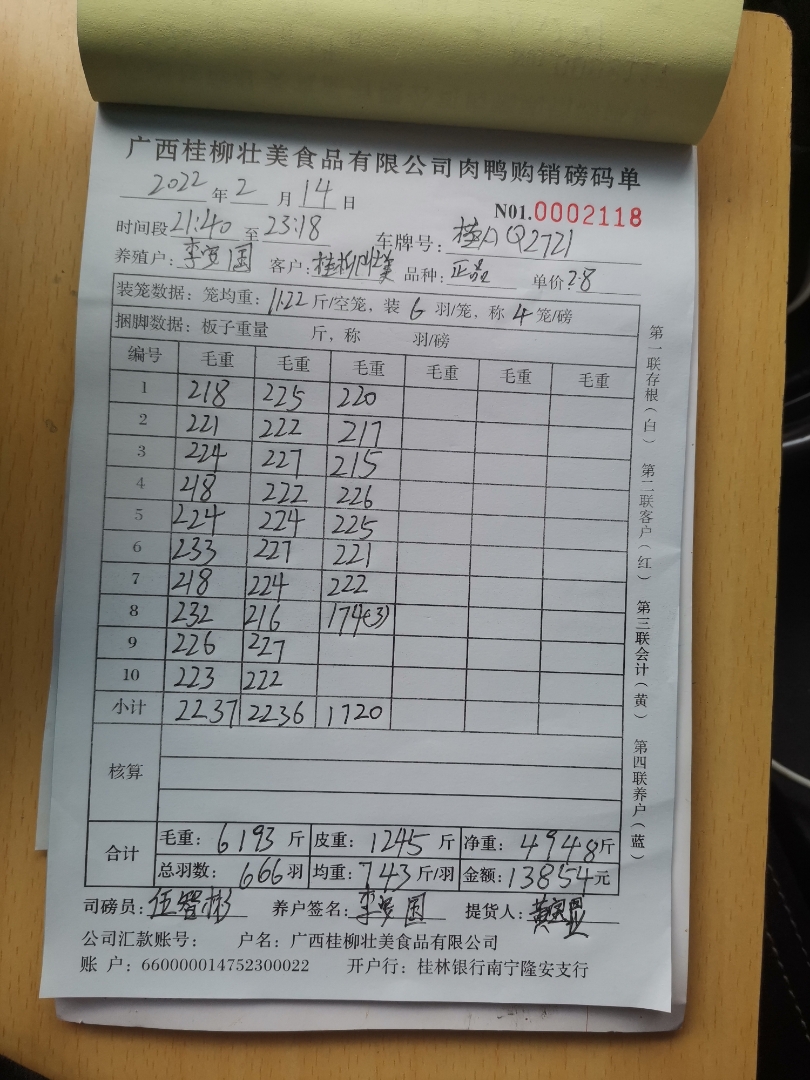 广西桂柳壮美食品有限公司肉鸭购销磅码单
2022 年 2 月 14 日
N01.0002118
时间段 21:40 至 23:18 车牌号: 桂AQ2721
养殖户: 国 客户: 桂柳壮美 品种: 正品 单价 2.8
装笼数据: 笼均重: 11.22 斤/空笼, 装 6 羽/笼, 称 4 笼/磅
捆脚数据: 板子重量 斤, 称 羽/磅
编号 毛重 毛重 毛重 毛重 毛重 毛重
1 218 225 220
2 221 222 217
3 224 227 215
4 218 222 226
5 224 224 225
6 233 227 221
7 218 224 222
8 232 216 174(3)
9 226 227
10 223 222
小计 2237 2236 1720
核算
合计 毛重: 6193 斤 皮重: 1245 斤 净重: 4948 斤
总羽数: 666 羽 均重: 743 斤/羽 金额: 13854 元
司磅员: 伍智彬 养户签名: 国 提货人: 黄
公司汇款账号: 户名: 广西桂柳壮美食品有限公司
账 户: 660000014752300022 开户行: 桂林银行南宁隆安支行
第一联存根(白) 第二联客户(红) 第三联会计(黄) 第四联养户(蓝)